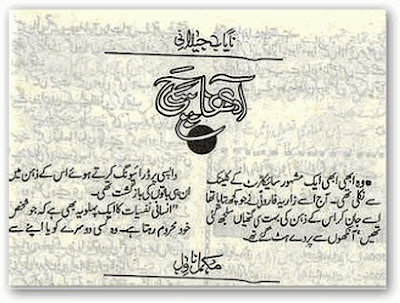 نایاب جیلانی
آدھا سچ
وہ ابھی ابھی ایک مشہور سائیکاٹرسٹ کے کلینک
سے نکلی تھی۔ آج اسے زاریہ فاروقی نے جو کچھ بتایا تھا
اسے جان کر اس کے ذہن کی بہت سی گتھیاں سلجھ گئی
تھیں آنکھوں سے پردے ہٹ گئے تھے۔
واپسی پر ڈرائیونگ کرتے ہوئے اس کے ذہن میں
ان ہی باتوں کی بازگشت تھی۔
"انسانی نفسیات کا ایک پہلو یہ بھی ہے کہ جو شخص
خود محروم رہتا ہے۔ وہ کسی دوسرے کو یا اپنے سے
مکمل ناول